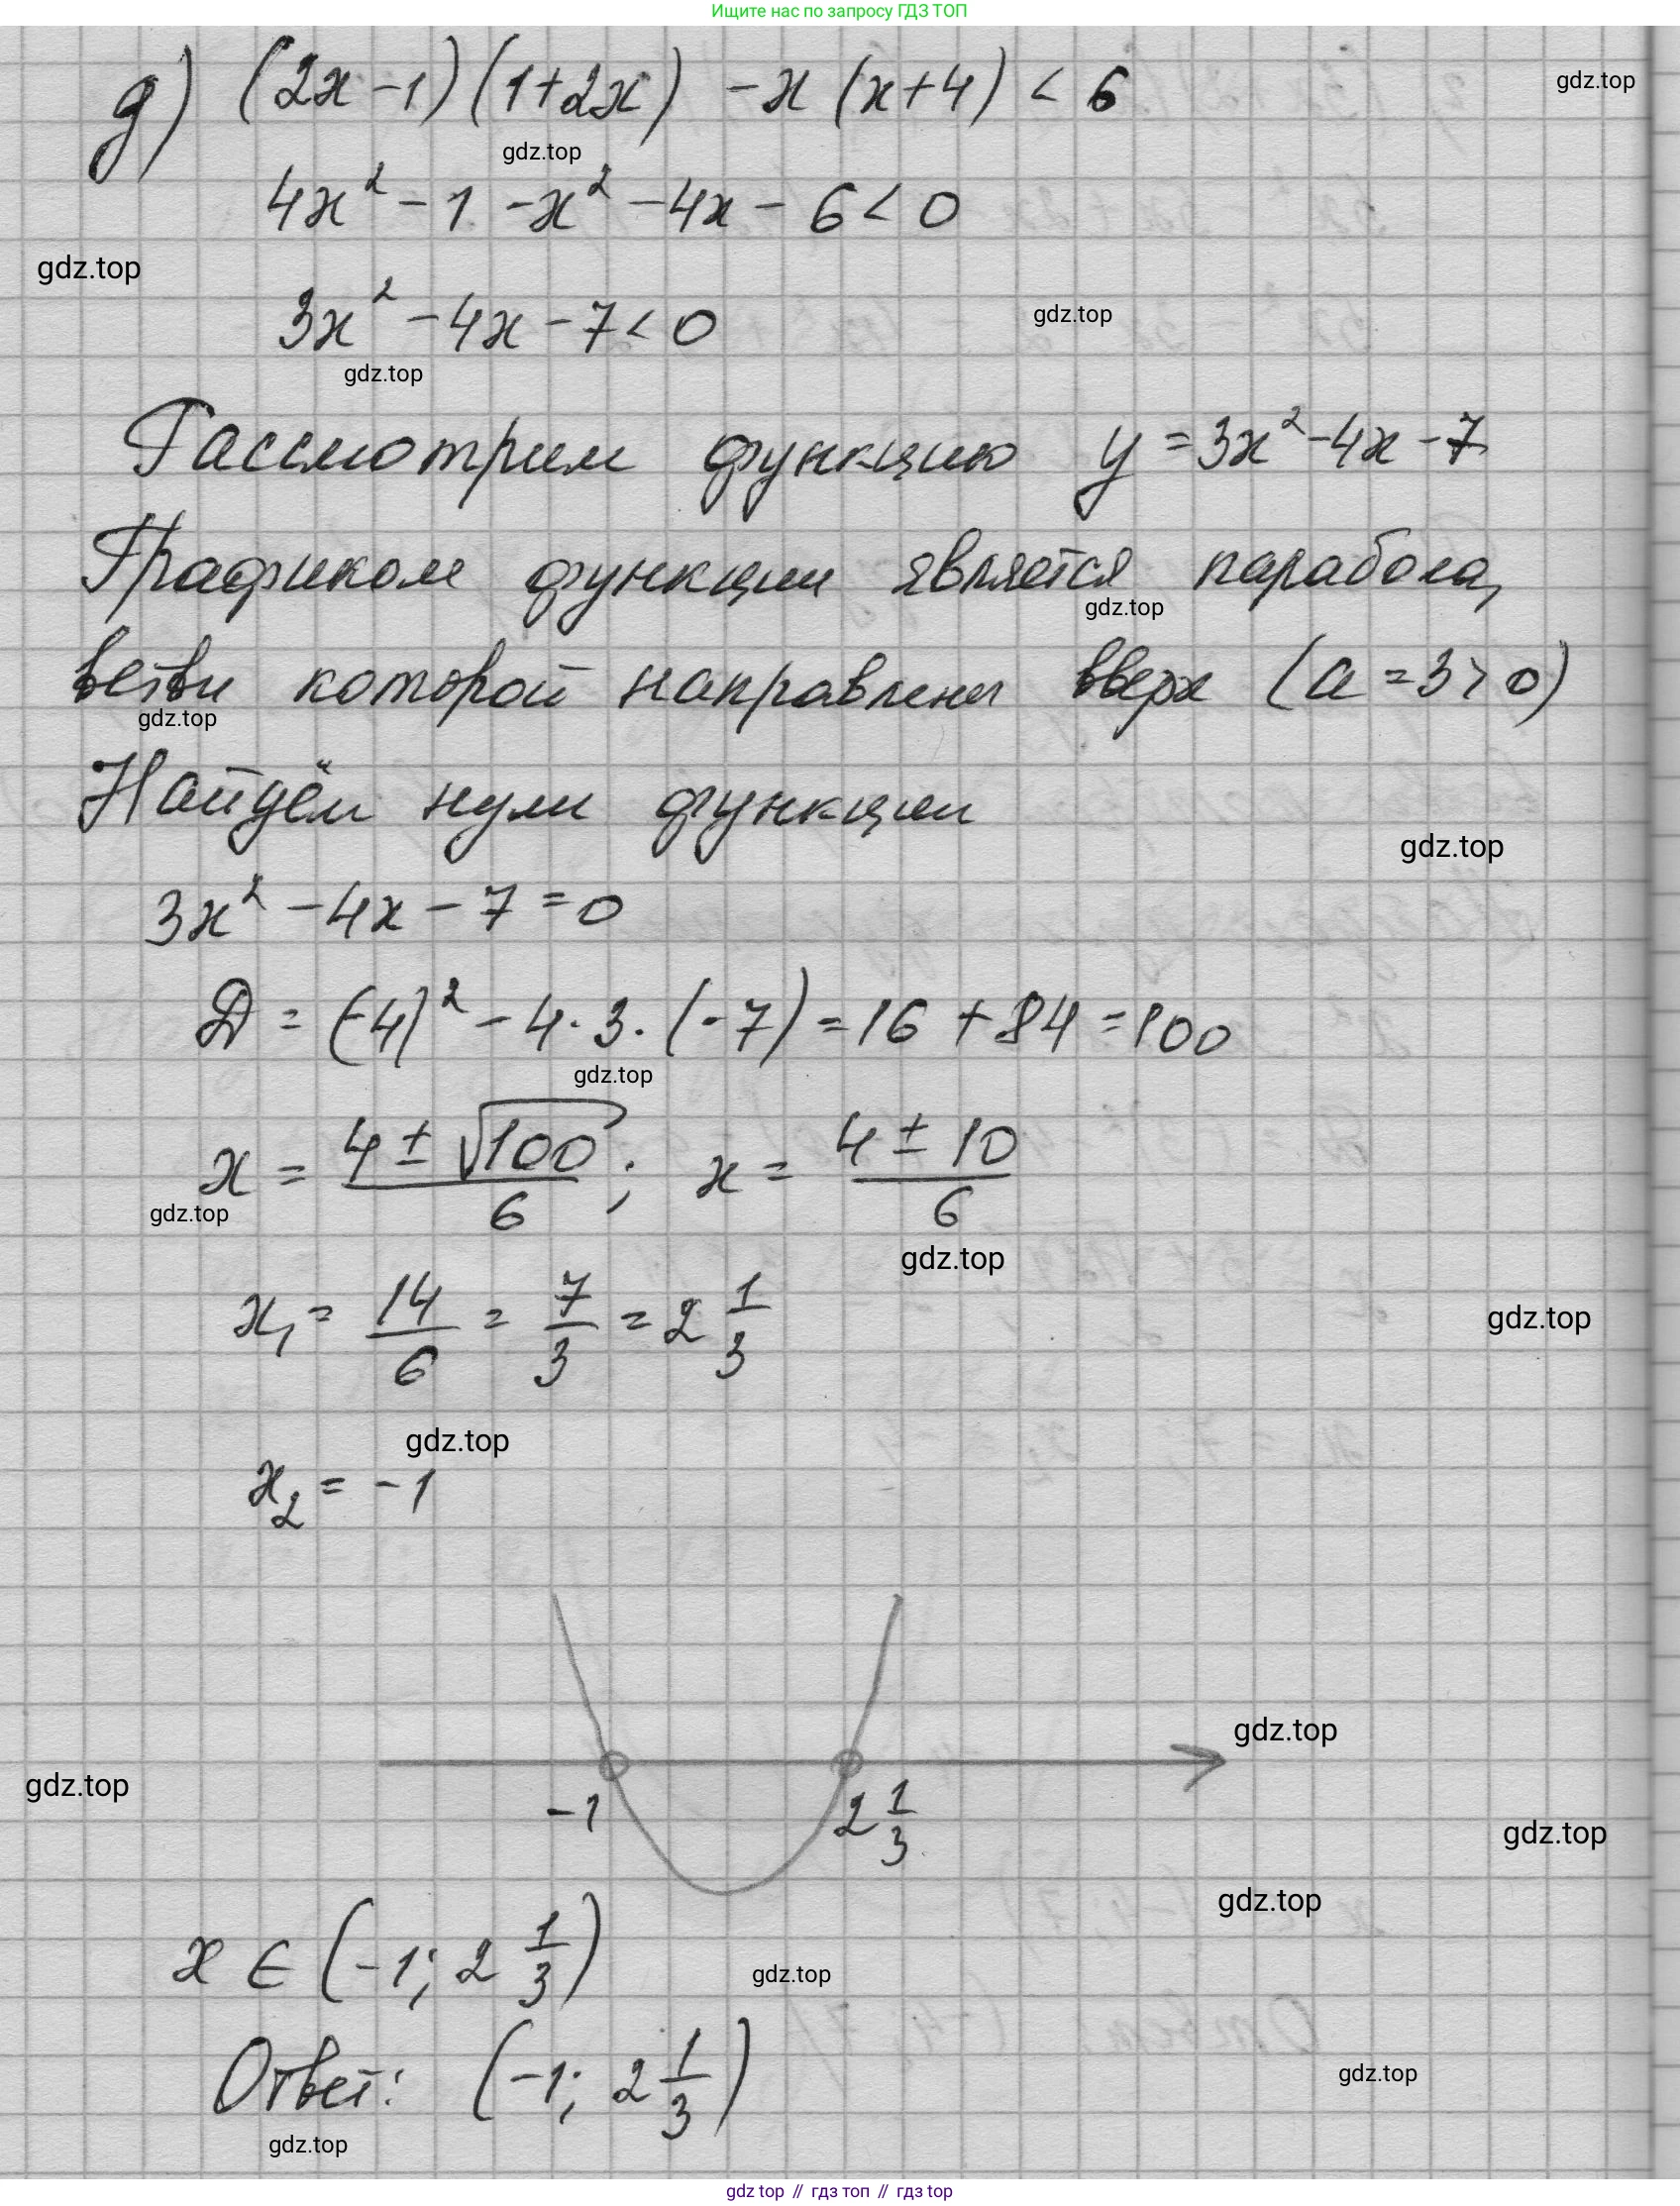 Ищите нас по запросу ГДЗ ТОП
д) (2x-1)(1+2x) -x(x+4) < 6
gdz.top
gdz.top
4x²-1-x²-4x-6<0
gdz.top
3x²-4x-7<0
gdz.top
gdz.top
Рассмотрим функцию y=3x²-4x-7
Графиком функции является парабола,
gdz.top
ветви которой направлены вверх (a=3>0)
gdz.top
Найдём нули функции
gdz.top
3x²-4x-7=0
D = (-4)²-4·3·(-7)=16+84=100
gdz.top
x = (4±√100)/6; x = (4±10)/6
gdz.top
gdz.top
x₁ = 14/6 = 7/3 = 2 1/3
gdz.top
gdz.top
x₂ = -1
gdz.top
gdz.top
-1 2 1/3
gdz.top
gdz.top
x ∈ (-1; 2 1/3)
gdz.top
Ответ: (-1; 2 1/3)
gdz.top
gdz.top
gdz top // гдз топ // гдз top